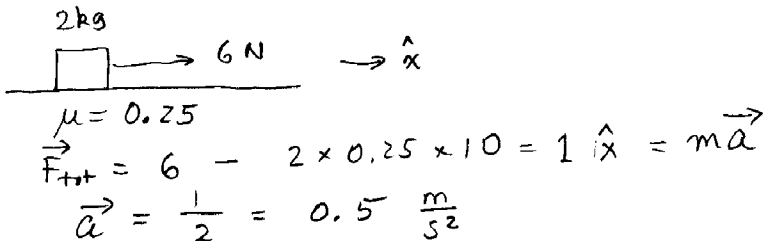 2kg
6 N → x̂
μ = 0.25
F⃗tot = 6 - 2 × 0.25 × 10 = 1 x̂ = ma⃗
a⃗ = 1/2 = 0.5 m/s²